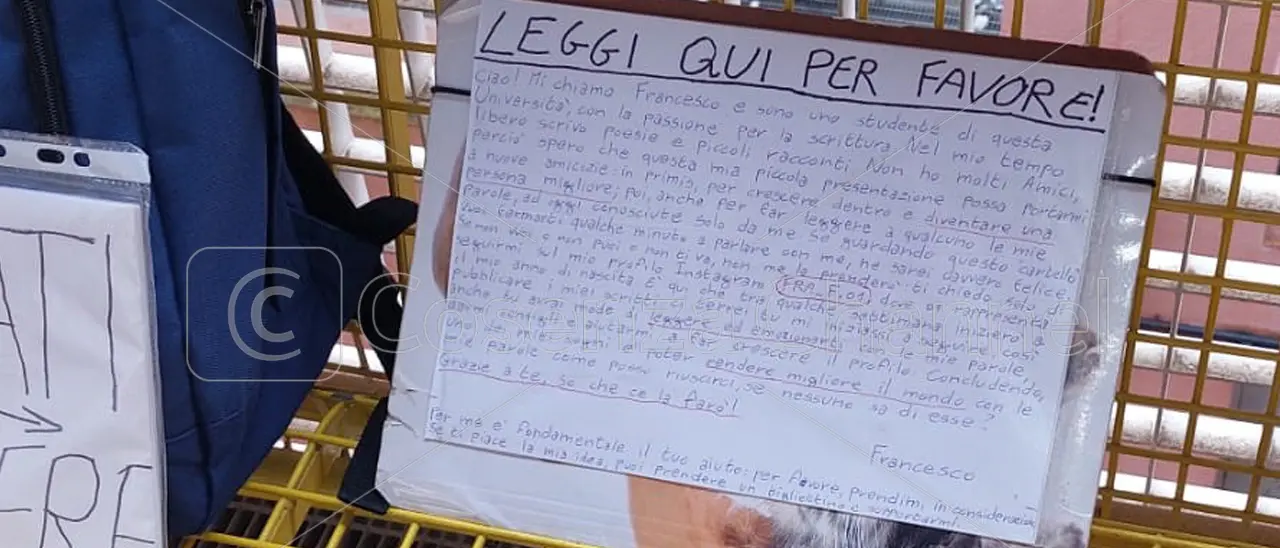 LEGGI QUI PER FAVORE!
Ciao! Mi chiamo Francesco e sono uno studente di questa
Università, con la passione per la scrittura. Nel mio tempo
libero scrivo poesie e piccoli racconti. Non ho molti Amici,
perciò spero che questa mia piccola presentazione possa portarmi
a nuove amicizie: in primis, per crescere dentro e diventare una
persona migliore; poi, anche per far leggere a qualcuno le mie
parole, ad oggi conosciute solo da me. Se guardando questo cartello
vuoi fermarti qualche minuto a parlare con me, ne sarei davvero felice.
Se non vuoi o non puoi o non ti va, non me la prenderò: ti chiedo solo di
seguirmi sul mio profilo Instagram FRA dove rappresenta
il mio anno di nascita È qui che tra qualche settimana inizierò a
pubblicare i miei scritti ci terrei tu mi iniziassi a seguire così
anche tu avrai modo di leggere ed emozionarti con le mie parole
darmi consigli e aiutarmi a far crescere il profilo. Concludendo,
uno dei miei sogni è poter rendere migliore il mondo con le
mie parole come posso riuscirci, se nessuno sa di esse?
Grazie a te, so che ce la farò!
Francesco
Per me è fondamentale il tuo aiuto: per favore, prendimi in considerazione
Se ti piace la mia idea, puoi prendere un bigliettino e supportarmi.
ATT
FRE
© Cosenza Channel